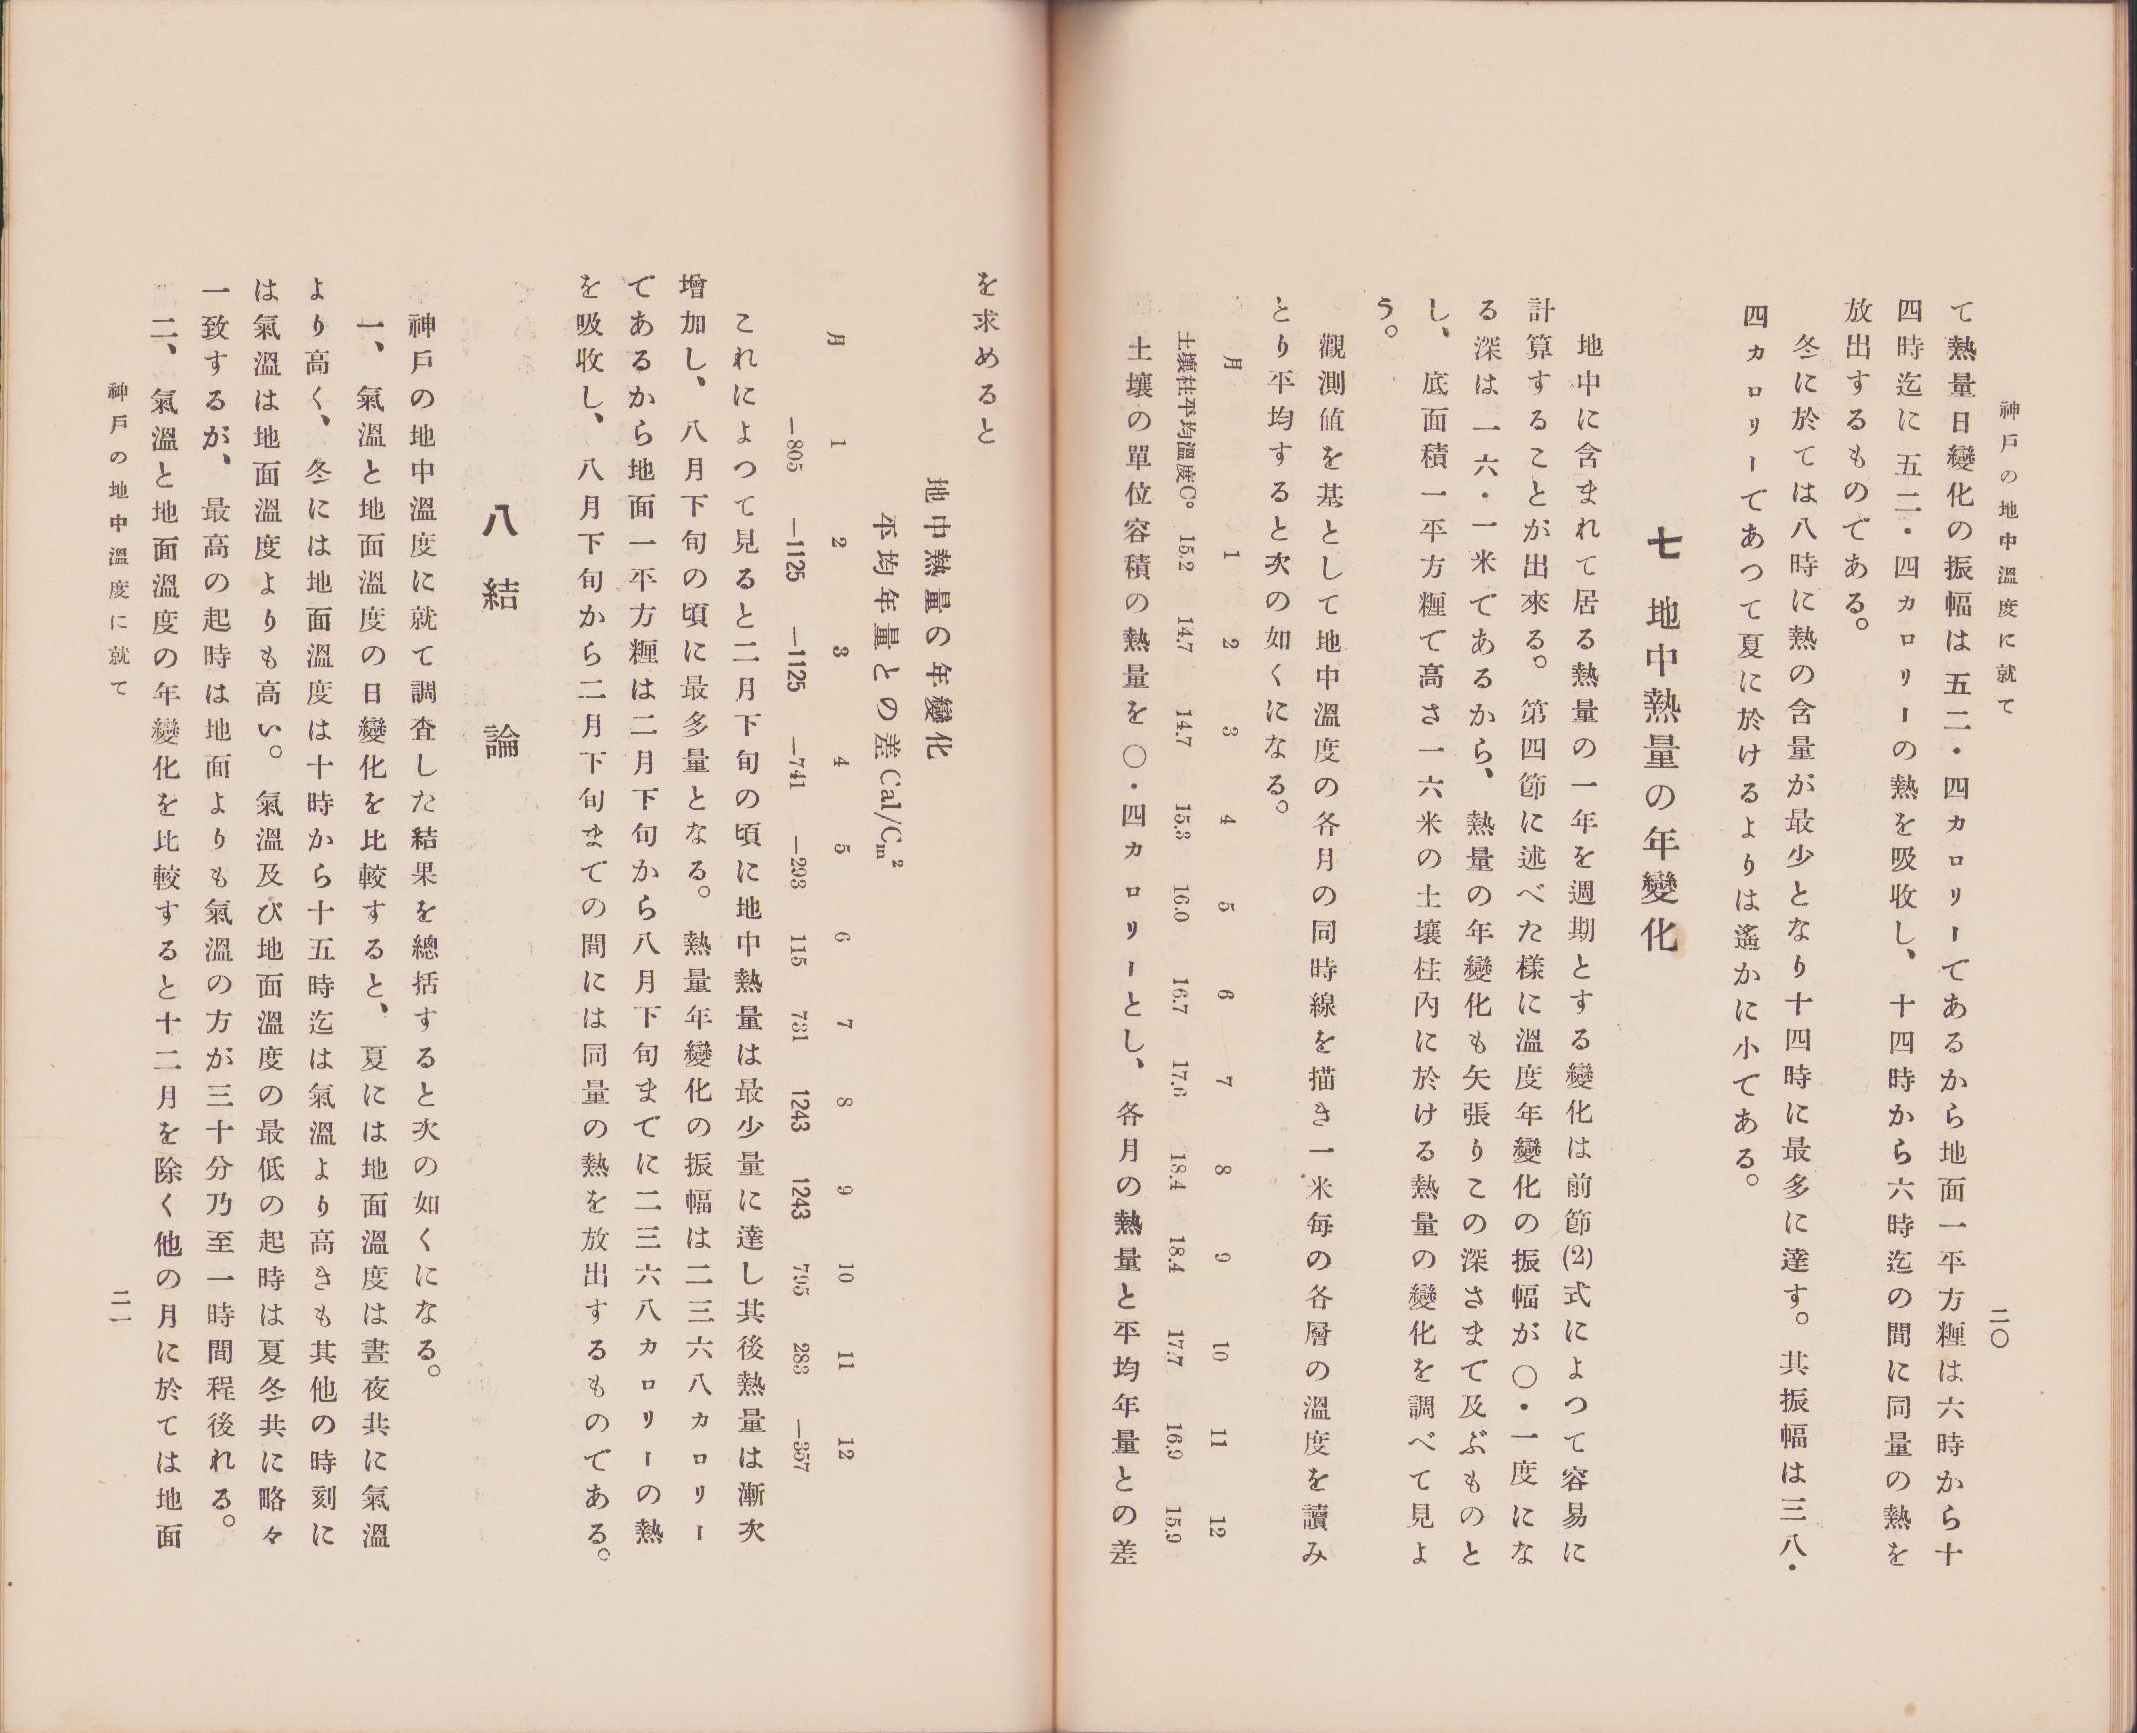 神戸の地中溫度に就て
二〇
て熱量日變化の振幅は五二・四カロリーであるから地面一平方糎は六時から十
四時迄に五二・四カロリーの熱を吸收し、十四時から六時迄の間に同量の熱を
放出するものである。
冬に於ては八時に熱の含量が最少となり十四時に最多に達す。其振幅は三八・
四カロリーであつて夏に於けるよりは遙かに小てある。
七 地中熱量の年變化
地中に含まれて居る熱量の一年を週期とする變化は前節(2)式によつて容易に
計算することが出來る。第四節に述べた樣に溫度年變化の振幅が〇・一度にな
る深は一六・一米であるから、熱量の年變化も矢張りこの深さまで及ぶものと
し、底面積一平方糎て高さ一六米の土壤柱內に於ける熱量の變化を調べて見よ
う。
觀測値を基として地中溫度の各月の同時線を描き一米每の各層の溫度を讀み
とり平均すると次の如くになる。
月 1 2 3 4 5 6 7 8 9 10 11 12
土壤柱平均溫度C° 15.2 14.7 14.7 15.3 16.0 16.7 17.6 18.4 18.4 17.7 16.9 15.9
土壤の單位容積の熱量を〇・四カロリーとし、各月の熱量と平均年量との差
を求めると
地中熱量の年變化
平均年量との差 Cal/Cm²
月 1 2 3 4 5 6 7 8 9 10 11 12
—805 —1125 —1125 —741 —293 115 731 1243 1243 795 283 —357
これによつて見ると二月下旬の頃に地中熱量は最少量に達し其後熱量は漸次
增加し、八月下旬の頃に最多量となる。熱量年變化の振幅は二三六八カロリー
であるから地面一平方糎は二月下旬から八月下旬までに二三六八カロリーの熱
を吸收し、八月下旬から二月下旬までの間には同量の熱を放出するものである。
八 結 論
神戸の地中溫度に就て調査した結果を總括すると次の如くになる。
一、氣溫と地面溫度の日變化を比較すると、夏には地面溫度は晝夜共に氣溫
より高く、冬には地面溫度は十時から十五時迄は氣溫より高きも其他の時刻に
は氣溫は地面溫度よりも高い。氣溫及び地面溫度の最低の起時は夏冬共に略々
一致するが、最高の起時は地面よりも氣溫の方が三十分乃至一時間程後れる。
二、氣溫と地面溫度の年變化を比較すると十二月を除く他の月に於ては地面
神戸の地中溫度に就て
二一